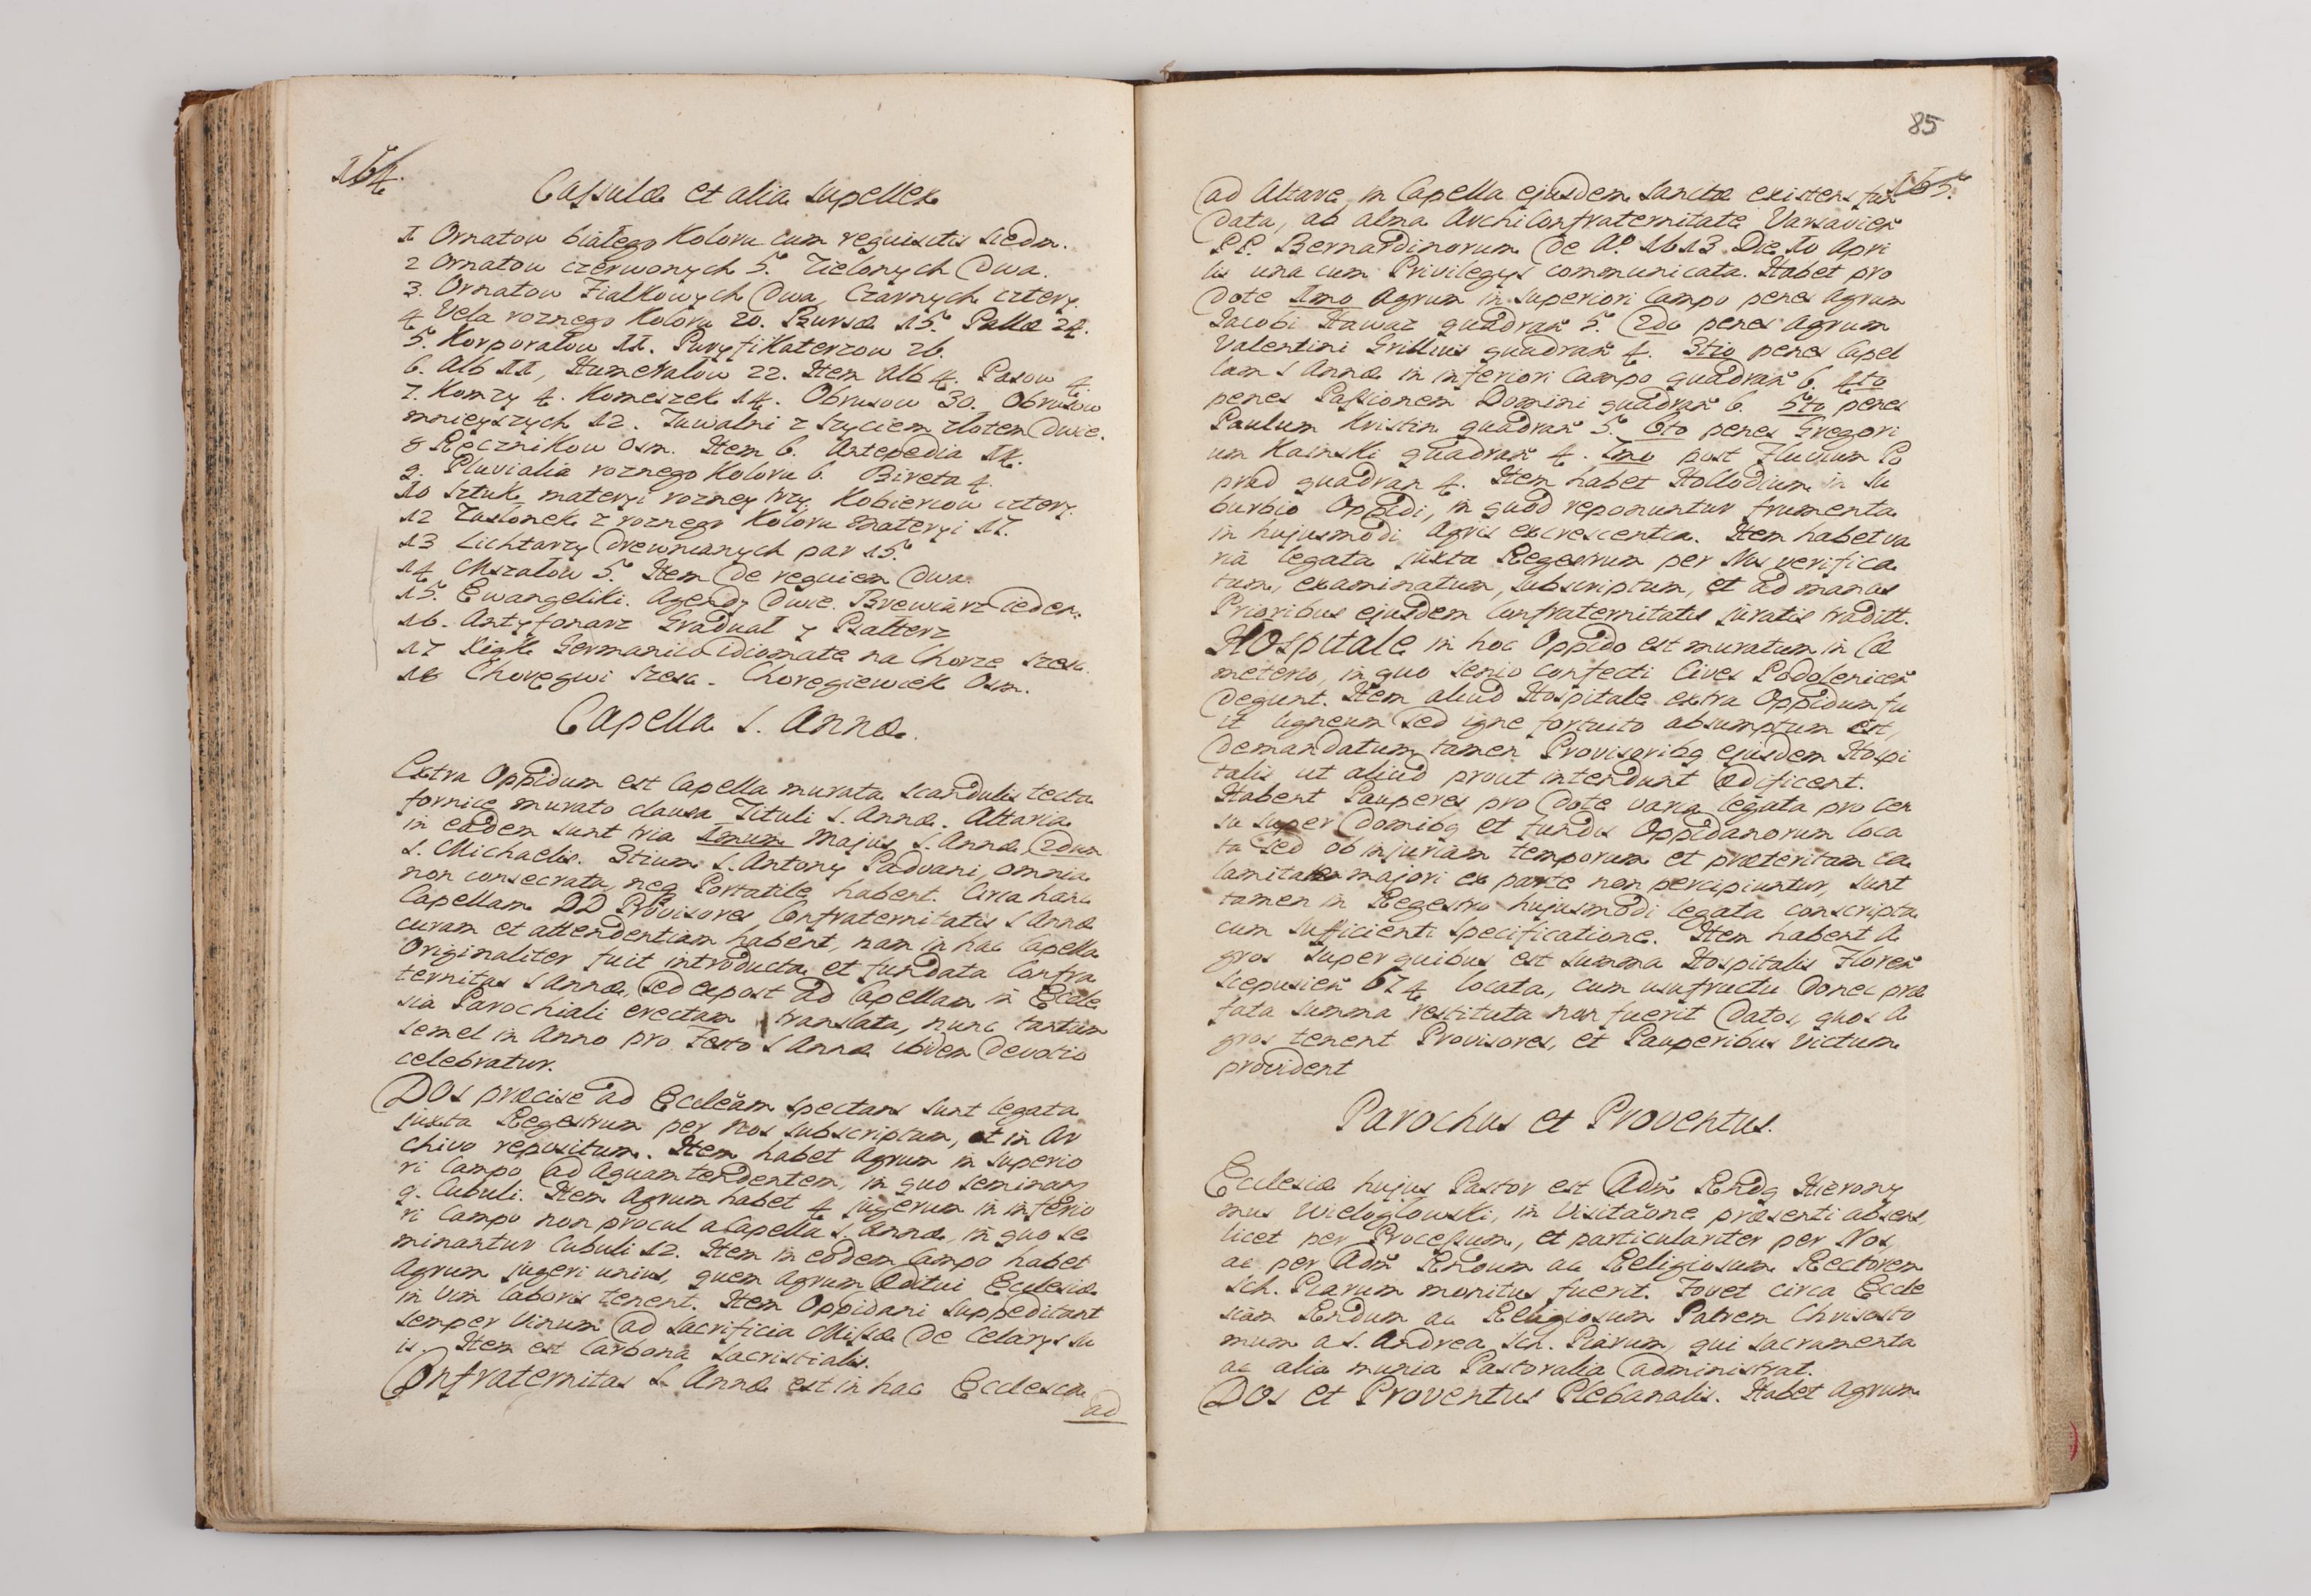 164.
Cassulæ et alia supellex
1 Ornatow białego Koloru cum requisitis siedm.
2 Ornatow czerwonych 5. Zielonych dwa.
3. Ornatow Fialkowych dwa, Czarnych cztery.
4 Vela roznego Koloru 20. Bursæ 15. Pallæ 24.
5. Korporałow 11. Puryfikaterzow 26.
6. Alb 11, Humerałow 22. Item Alb 4. Pasow 4.
7. Komzy 4. Komeszek 14. Obrusow 30. Obrusow
mnieyszych 12. Tuwalni z szyciem złotem dwie.
8 Ręcznikow osm. Item 6. Antepedia 11.
9. Pluvialia roznego Koloru 6. Bireta 4.
10 Sztuk materyi rozney trzy Kobiercow cztery.
12 Zasłonek z roznego Koloru materyi 17.
13 Lichtarzy drewnianych par 15.
14 Mszałow 5. Item de requiem dwa.
15. Ewangeliki. Agendy dwie. Brewiarz ieden.
16. Antyfonarz Graduał y Psalterz
17 Xiąk Germanico idiomate na Chorze szesc.
18 Choręgwi szesc. Choregiewek Osm.
Capella S. Annæ.
Extra Oppidum est Capella murata scandulis tecta
fornice murato clausa Tituli S. Annæ. Altaria
in eadem sunt tria 1mum Majus S. Annæ, 2dum
S. Michaelis. 3tium S. Antony Paduani, omnia
non consecrata, neq Portatile habent. Circa hanc
Capellam DD Provisores Confraternitatis S Annæ
curam et attendentiam habent, nam in hac Capella
Originaliter fuit introducta et fundata Confra
ternitas S Annæ, sed expost ad Capellam in Eccle
sia Parochiali erectam translata, nunc tantum
semel in Anno pro Festo S Annæ ibidem devotio
celebratur.
DOS præcise ad Eccleãm spectans sunt legata
juxta Regestrum per nos subscriptum, et in Ar
chivo repositum. Item habet Agrum in superio
ri Campo ad Aquam tendentem, in quo seminan
9. Cubuli. Item Agrum habet 4 jugerum in inferio
ri Campo non procul a Capella S. Annæ, in quo se
minantur Cubuli 12. Item in eodem Campo habet
Agrum jugeri unius, quem Agrum Æditui Ecclesiæ
in vim laboris tenent. Item Oppidani suppeditant
semper Vinum ad sacrificia Missæ de Celarys su
is. Item est Carbona Sacristialis.
Confraternitas S. Annæ est in hac Ecclesia
ad
85
165.
ad Altare in Capella ejusdem Sanctæ existens fun
data, ab alma Archiconfraternitate Varsavien
P.P. Bernardinorum de Aº. 1613 Die 10 Apri
lis una cum Privilegys communicata. Habet pro
dote 1mo Agrum in superiori Campo penes Agrum
Jacobi Hawaz quadran 5. 2do penes Agrum
Valentini Grillius quadran 4. 3tio penes Capel
lam S Annæ in inferiori Campo quadran 6. 4to
penes Passionem Domini quadran 6. 5to penes
Paulum Kristin quadran 5. 6to penes Gregori
um Kasinski quadran 4. 7mo post Fluvium Po
prad quadran 4. Item habet Hollodium in Su
burbio Oppidi, in quod reponuntur frumenta
in hujusmodi Agris excrescentia. Item habet va
ria legata juxta Regestrum per Nos verifica
tum, examinatum, subscriptum, et ad manus
Prioribus ejusdem Confraternitatis juratis traditt.
HOspitale in hoc Oppido est muratum in Cæ
meterio, in quo senio confecti Cives Podolenicen
degunt. Item aliud Hospitale extra Oppidum fu
it ligneum sed igne fortuito absumptum est,
demandatum tamen Provisoribq ejusdem Hospi
talis ut aliud prout intendunt ædificent.
Habent Pauperes pro dote varia legata pro Cen
su super domibq et fundis Oppidanorum loca
ta sed ob injuriam temporum et præteritam ca
lamitatem majori ex parte non percipiuntur, sunt
tamen in Regestro hujusmodi legata conscripta
cum sufficienti specificatione. Item habent A
gros super quibus est summa Hospitalis Floren
Scepusien 674 locata, cum usufructu donec præ
fata summa restituta non fuerit datos, quos A
gros tenent Provisores, et Pauperibus Victum
provident
Parochus et Proventus.
Ecclesiæ hujus Pastor est Adm̃ Rndq Hierony
mus Wieloglowski, in Visitãone præsenti absens,
licet per Processum, et particulariter per Nos,
ac per Adm̃ Rndum ac Religiosum Rectorem
Sch. Piarum monitus fuerit. Fovet circa Eccle
siam Rndum ac Religiosum Patrem Chrisosto
mum a S. Andrea Sch. Piarum, qui Sacramenta
ac alia munia Pastoralia administrat.
DOS et Proventus Plebanalis. Habet Agrum